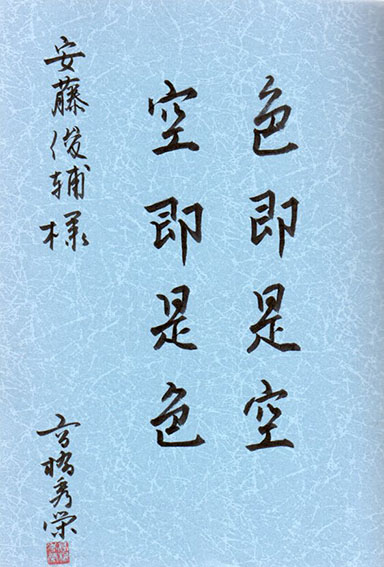 色即是空
空即是色
安藤俊輔様
高橋秀栄